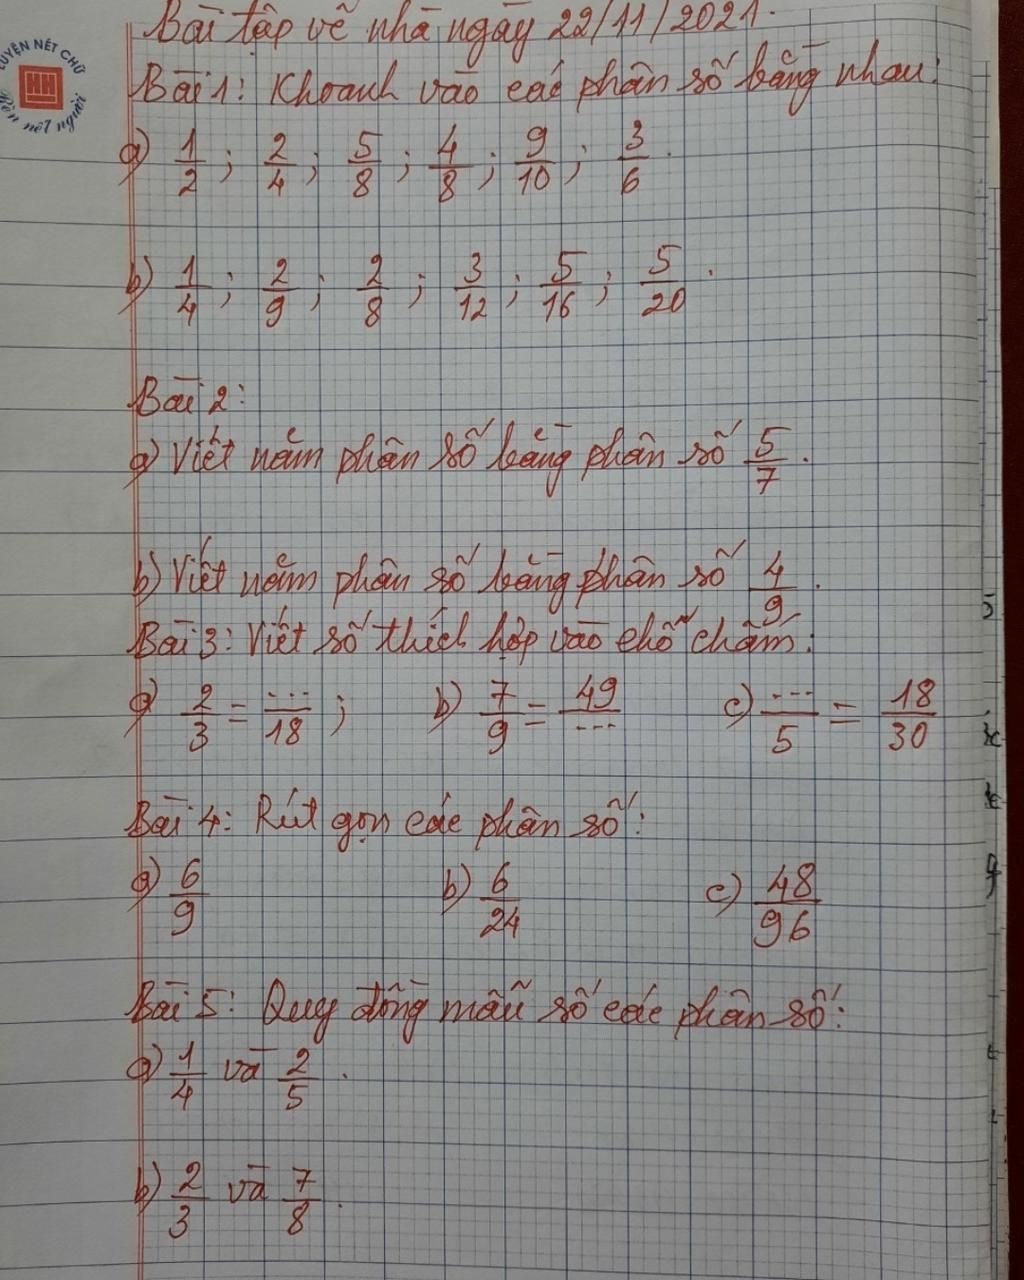 LUYỆN NÉT CHỮ
HH
nết người
Bài tập về nhà ngày 22/11/2021.
Bài 1: Khoanh vào các phân số bằng nhau:
a) 1/2 ; 2/4 ; 5/8 ; 4/8 ; 9/10 ; 3/6 .
b) 1/4 ; 2/9 ; 2/8 ; 3/12 ; 5/16 ; 5/20 .
Bài 2:
a) Viết năm phân số bằng phân số 5/7 .
b) Viết năm phân số bằng phân số 4/9 .
Bài 3: Viết số thích hợp vào chỗ chấm:
a) 2/3 = .../18 ; b) 7/9 = 49/... c) .../5 = 18/30
Bài 4: Rút gọn các phân số:
a) 6/9 b) 6/24 c) 48/96
Bài 5: Quy đồng mẫu số các phân số:
a) 1/4 và 2/5 .
b) 2/3 và 7/8 .